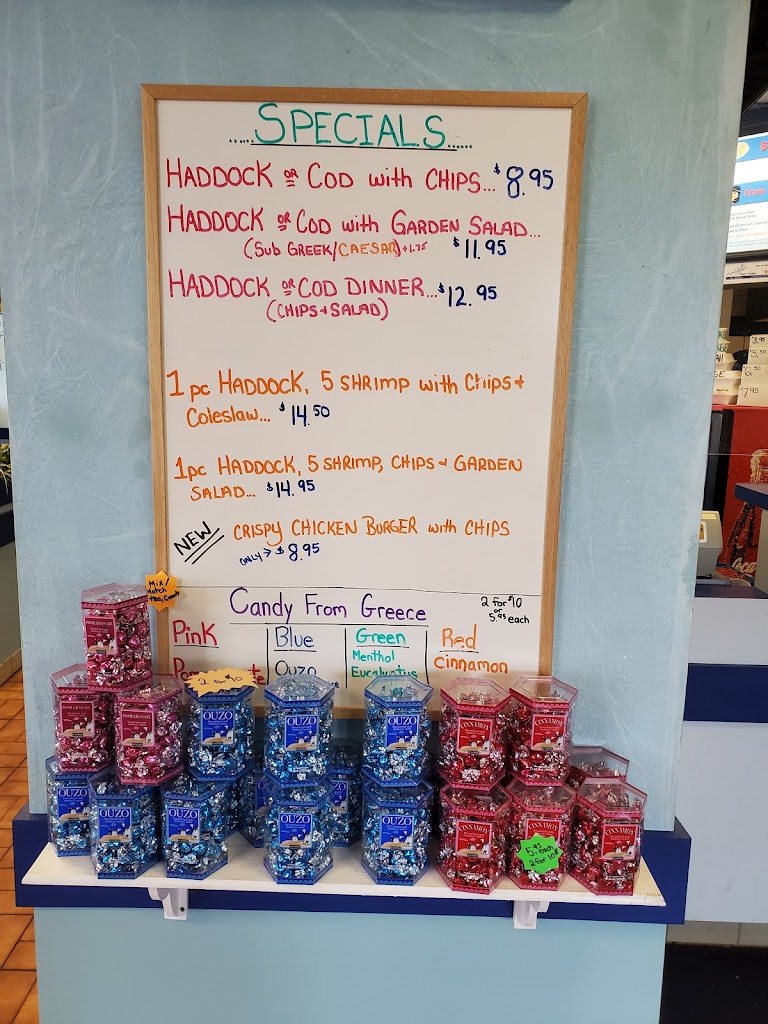 SPECIALS
HADDOCK OR COD with CHIPS... $8.95
HADDOCK OR COD with GARDEN SALAD...
(SUB GREEK/CAESAR)+1.75 $11.95
HADDOCK OR COD DINNER... $12.95
(CHIPS + SALAD)
1 pc HADDOCK, 5 SHRIMP with CHIPS +
Coleslaw... $14.50
1pc HADDOCK, 5 SHRIMP, CHIPS + GARDEN
SALAD... $14.95
NEW CRISPY CHICKEN BURGER with CHIPS
ONLY > $8.95
Mix/
Candy From Greece
2 for $10
or
5.95 each
Pink Blue Green Red
Ouzo Menthol Cinnamon
Eucalyptus
POMEGRANATE
POMEGRANATE
POMEGRANATE
2 for $10
OUZO
OUZO
OUZO
CINNAMON
CINNAMON
OUZO
OUZO
OUZO
OUZO
OUZO
CINNAMON
CINNAMON
CINNAMON
5.95 each
2 for 10$
3.95
5.50
6.50
7.95
Coca